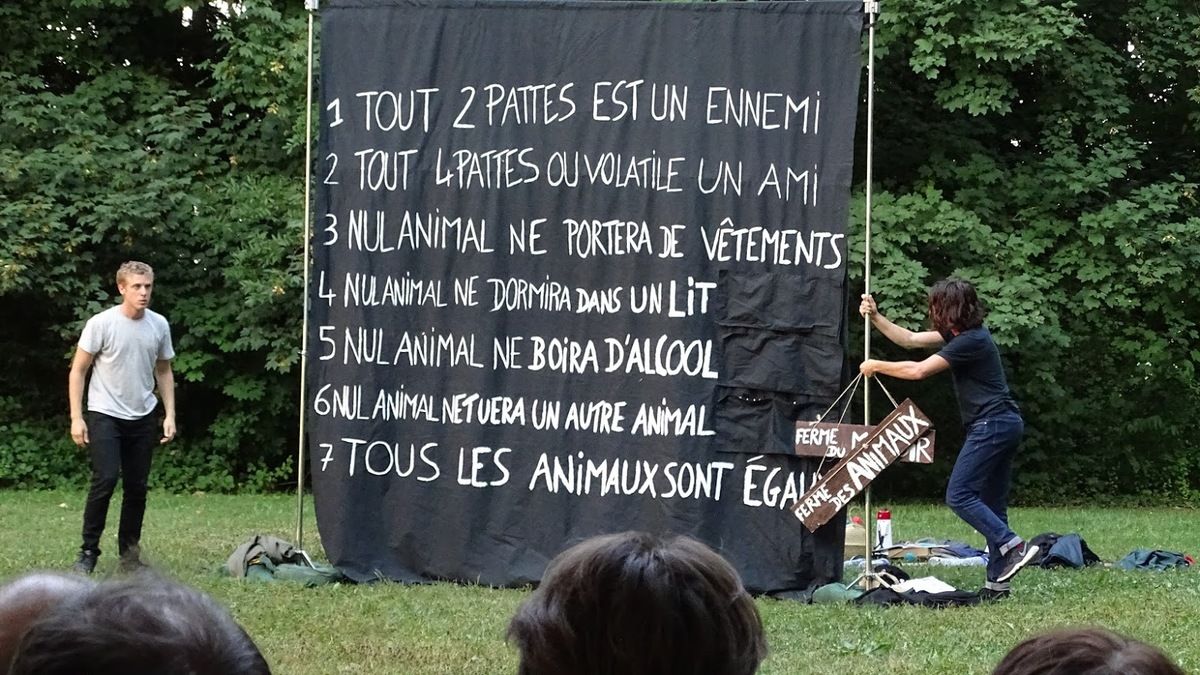 1 TOUT 2 PATTES EST UN ENNEMI
2 TOUT 4 PATTES OU VOLATILE UN AMI
3 NUL ANIMAL NE PORTERA DE VÊTEMENTS
4 NUL ANIMAL NE DORMIRA DANS UN LIT
5 NUL ANIMAL NE BOIRA D'ALCOOL
6 NUL ANIMAL NE TUERA UN AUTRE ANIMAL
7 TOUS LES ANIMAUX SONT ÉGAUX
FERME
DU
FERME DES ANIMAUX